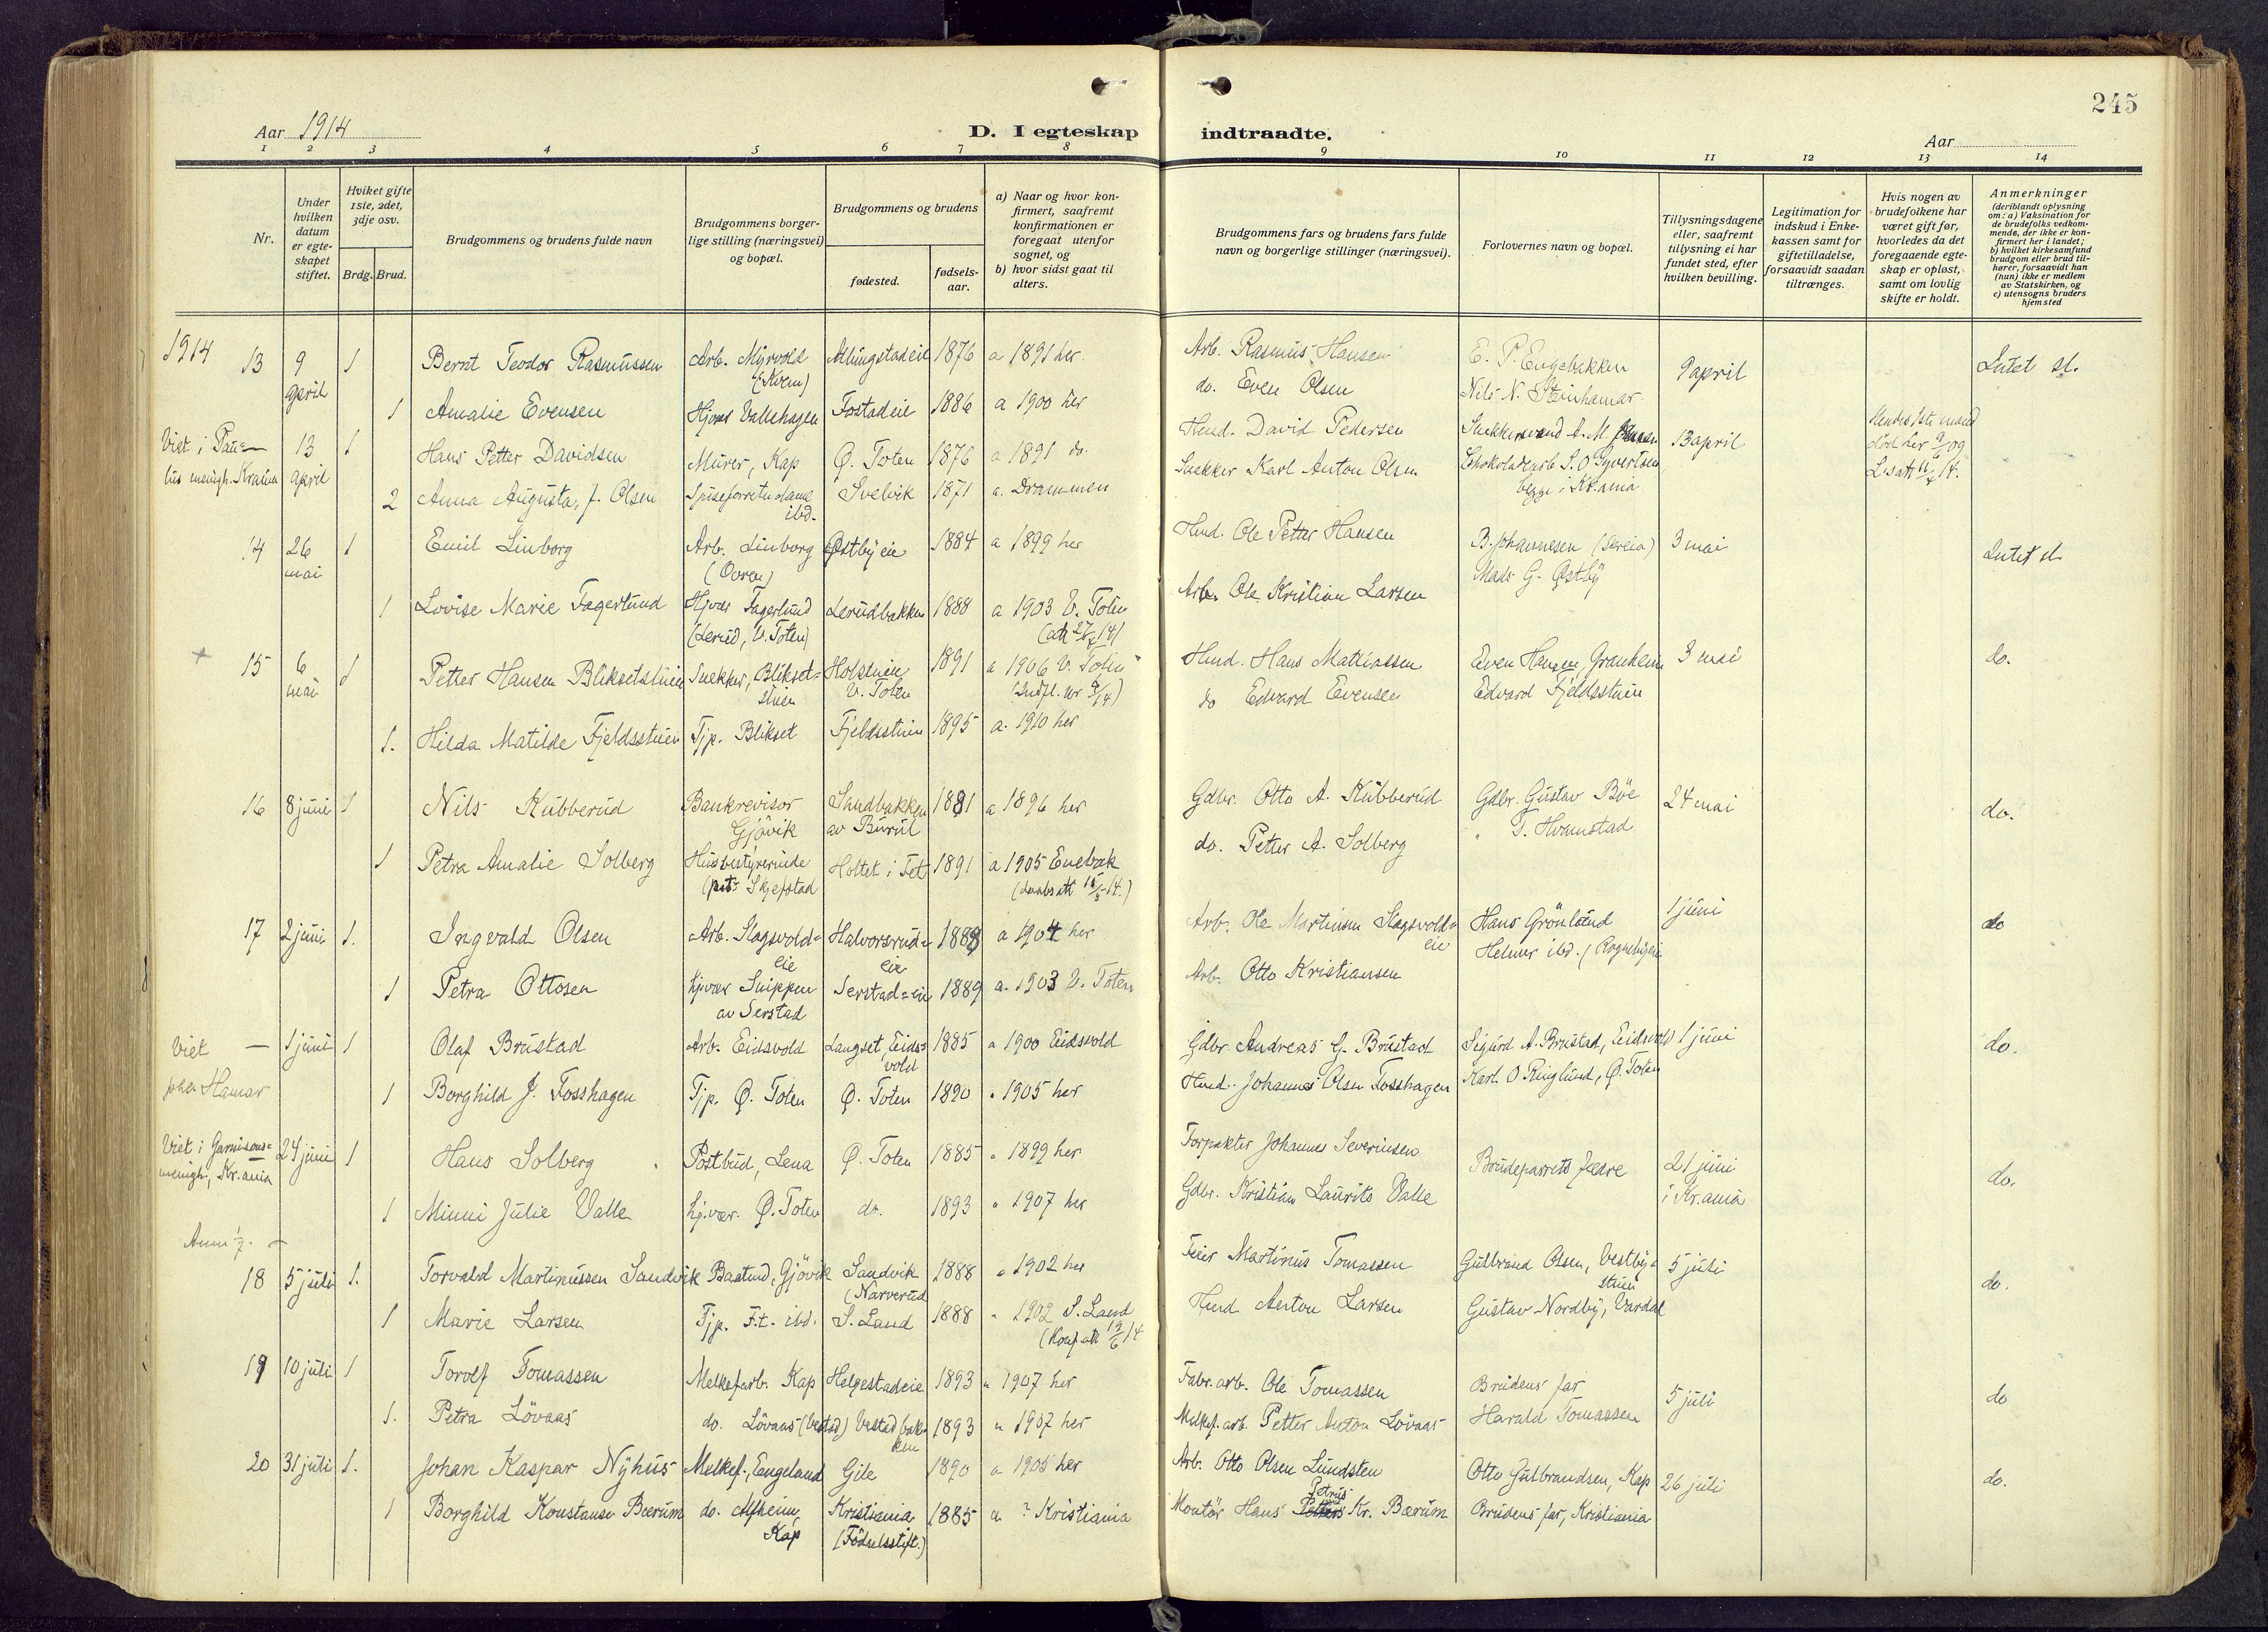 245
Aar 1914
D. I egteskap indtraadte.
Aar
1 2 3 4 5 6 7 8 9 10 11 12 13 14
Nr.
Under hvilken datum er egte-skapet stiftet.
Hviket gifte 1ste, 2det, 3dje osv.
Brdg. Brud.
Brudgommens og brudens fulde navn
Brudgommens borger-lige stilling (næringsvei) og bopæl.
Brudgommens og brudens
fødested.
fødsels-aar.
a) Naar og hvor kon-firmert, saafremt konfirmationen er foregaat utenfor sognet, og
b) hvor sidst gaat til alters.
Brudgommens fars og brudens fars fulde navn og borgerlige stillinger (næringsvei).
Forlovernes navn og bopæl.
Tillysningsdagene eller, saafremt tillysning ei har fundet sted, efter hvilken bevilling.
Legitimation for indskud i Enke-kassen samt for giftetilladelse, forsaavidt saadan tiltrænges.
Hvis nogen av brudefolkene har været gift før, hvorledes da det foregaaende egte-skap er opløst, samt om lovlig skifte er holdt.
Anmerkninger
(deriblandt oplysning om: a) Vaksination for de brudefolks vedkom-mende, der ikke er kon-firmert her i landet; b) hvilket kirkesamfund brudgom eller brud til-hører, forsaavidt han (hun) ikke er medlem av Statskirken, og c) utensogns bruders hjemsted
1914 13 9 april 1 Bernt Teodor Rasmussen Arb. Myrvold (Kvem) Allungstadeie 1876 a 1891 her. Arb. Rasmus Hansen E. P. Engebakken 9 april Intet sl.
1 Amalie Evensen Hjvær Vallehagen Fostadeie 1886 a 1900 her do. Even Olsen Nils N. Steinhamar
Viet i Pau=lus menigh. Kr.ania 13 april 1 Hans Petter Davidsen Murer, Kap Ø. Toten 1876 a 1891 do. Husmd. David Pedersen 13 april
2 Anna Augusta, f. Olsen ibd. Svelvik 1871 a. Drammen Snekker Karl Anton Olsen Chokoladearb S. O Syvertsen begge i Kr.ania
14 26 mai 1 Emil Linborg Arb. Linborg Østbyeie 1884 a 1899 her Husmd. Ole Petter Hansen B. Johannesen (Skreia) 3 mai Intet sl.
1 Lovise Marie Fagerlund Hjvær Fagerlund (Lerud, V. Toten) Lerudbakken 1888 a 1903 V. Toten Arb. Ole Kristian Larsen Mads G. Østby
+ 15 6 mai 1 Petter Hansen Bliksetstuen Snekker, Blikset=stuen Holsteine V. Toten 1891 a 1906 V. Toten Husmd. Hans Matiassen Even Hansen, Granheim 3 mai do.
1. Hilda Matilde Fjeldsstuen Tjp. Blikset Fjeldsstuen 1895 a. 1910 her do Edvard Evensen Edvard Fjeldsstuen
16 8 juni 1 Nils Kubberud Bankrevisor Gjövik Sandbakken av Burul 1881 a 1896 her Gdbr. Otto A. Kubberud Gdbr. Gustav Böe 24 mai do.
1 Petra Amalie Solberg Husbestyrerinde Skjefstad Holtet i Fet 1891 a 1905 Enebak do. Petter A. Solberg T. Hvamstad
17 2 juni 1. Ingvald Olsen Arb. Slagsvold=eie Halvorsrud=eie 1888 a 1904 her Arb. Ole Martinsen Slagsvold=eie Hans Grönlund 1 juni do
1 Petra Ottosen Hjvær Snippen av Serstad Serstad=eie 1889 a. 1903 V. Toten Arb. Otto Kristiansen Helmer ibd.
Viet Hamar 1 juni 1 Olaf Brustad Arb. Eidsvold Langset, Eids=vold 1885 a 1900 Eidsvold Gdbr. Andreas G. Brustad Sigurd A. Brustad, Eidsvold 1 juni do.
1 Borghild J. Fosshagen Tjp. Ø. Toten Ø. Toten 1890 " 1905 her Husmd. Johannes Olsen Fosshagen Karl O Ringlund, Ø. Toten
Viet i Garnisons=menigh, Kr.ania 24 juni 1 Hans Solberg Postbud, Lena Ø. Toten 1885 " 1899 her Forpakter Johannes Severinsen Brudeparrets fædre 21 juni i Kr.ania do.
1 Minni Julie Valle Hj.vær. Ø. Toten do. 1893 " 1907 her Gdbr. Kristian Laurits Valle
18 5 juli 1. Torvald Martinussen Sandvik Baatmd, Gjövik Sandvik (Narverud 1888 " 1902 her Feier Martinus Tomassen Gulbrand Olsen, Vestby=stuen 5 juli do.
1 Marie Larsen Tjp. F.t. ibd. S. Land 1888 " 1902 S. Land Husmd Anton Larsen Gustav Nordby, Vardal
19 10 juli 1 Torolf Tomassen Melkefarb. Kap Helgestadeie 1893 " 1907 her Fabr.arb. Ole Tomassen Brudens far 5 juli do
1. Petra Lövaas do. Lövaas (Vestad) Vestadbak-ken 1893 " 1907 her Melkef.arb. Petter Anton Lövaas Harald Tomassen
20 31 juli 1. Johan Kaspar Nyhus Melkef., Engeland Gile 1890 a 1905 her Arb. Otto Olsen Lundsten Otto Gulbrandsen, Kap 26 juli do.
1 Borghild Konstanse Bærum do. Alfheim, Kap Kristiania (Födselsstift.) 1885 a ? Kristiania Montör Hans Petrus Kr. Bærum Brudens far, Kristiania